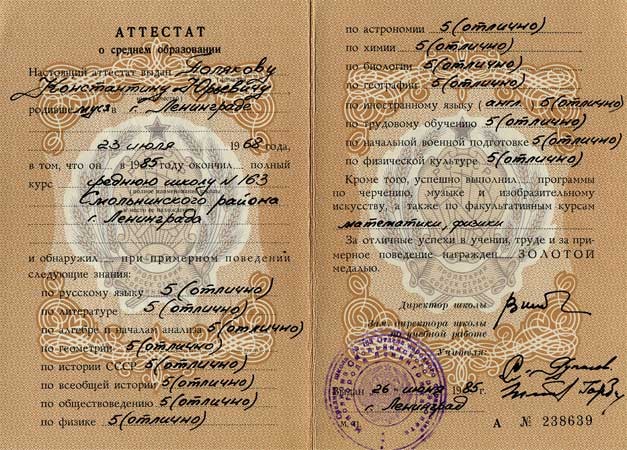 АТТЕСТАТ
о среднем образовании
Настоящий аттестат выдан Полякову
Константину Юрьевичу
родившемуся в г. Ленинграде
23 июля 1968 года,
в том, что он в 1985 году окончил полный
курс среднюю школу № 163
Смольнинского района
г. Ленинграда
и обнаружил при примерном поведении
следующие знания:
по русскому языку 5 (отлично)
по литературе 5 (отлично)
по алгебре и началам анализа 5 (отлично)
по геометрии 5 (отлично)
по истории СССР 5 (отлично)
по всеобщей истории 5 (отлично)
по обществоведению 5 (отлично)
по физике 5 (отлично)
по астрономии 5 (отлично)
по химии 5 (отлично)
по биологии 5 (отлично)
по географии 5 (отлично)
по иностранному языку (англ. 5 (отлично)
по трудовому обучению 5 (отлично)
по начальной военной подготовке 5 (отлично)
по физической культуре 5 (отлично)
Кроме того, успешно выполнил программы
по черчению, музыке и изобразительному
искусству, а также по факультативным курсам
математики, физики
За отличные успехи в учении, труде и за при-
мерное поведение награжден ЗОЛОТОЙ
медалью.
Директор школы
Зам. директора школы
по учебной работе
Учителя:
Выдан 26 июня 1985 г.
г. Ленинград
М. П.
А № 238639